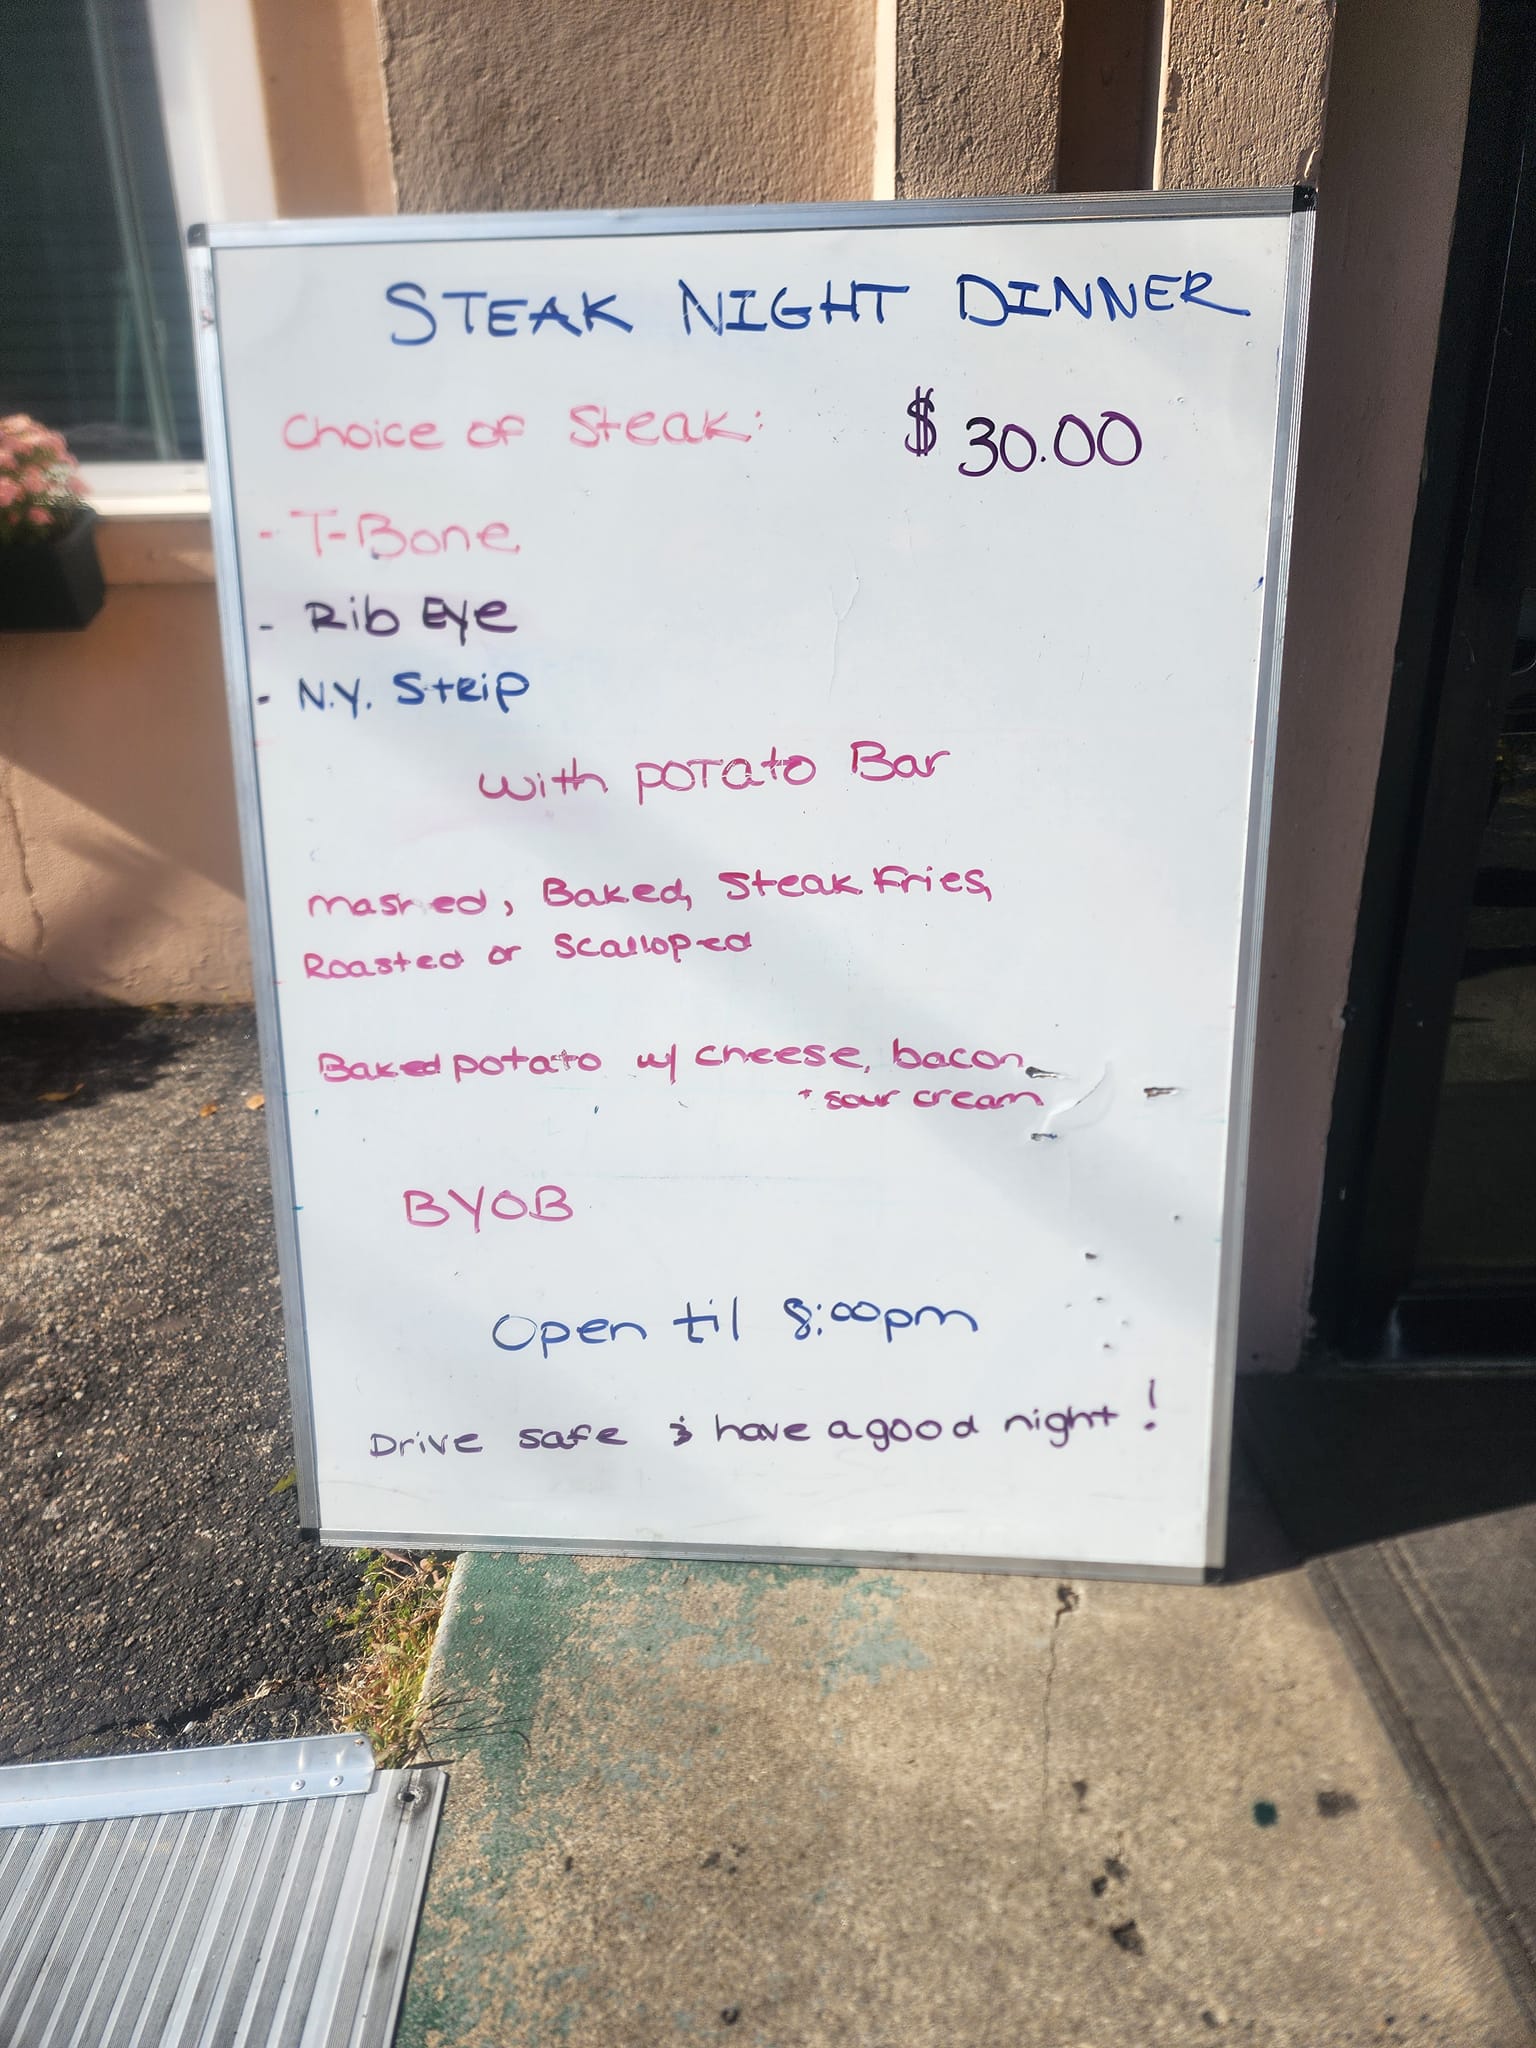 STEAK NIGHT DINNER
Choice of Steak: $30.00
- T-Bone
- Rib Eye
- N.Y. Strip
with potato Bar
mashed, Baked, Steak Fries,
Roasted or Scalloped
Baked potato w/ cheese, bacon
+ sour cream
BYOB
Open til 8:00pm
Drive safe & have a good night!